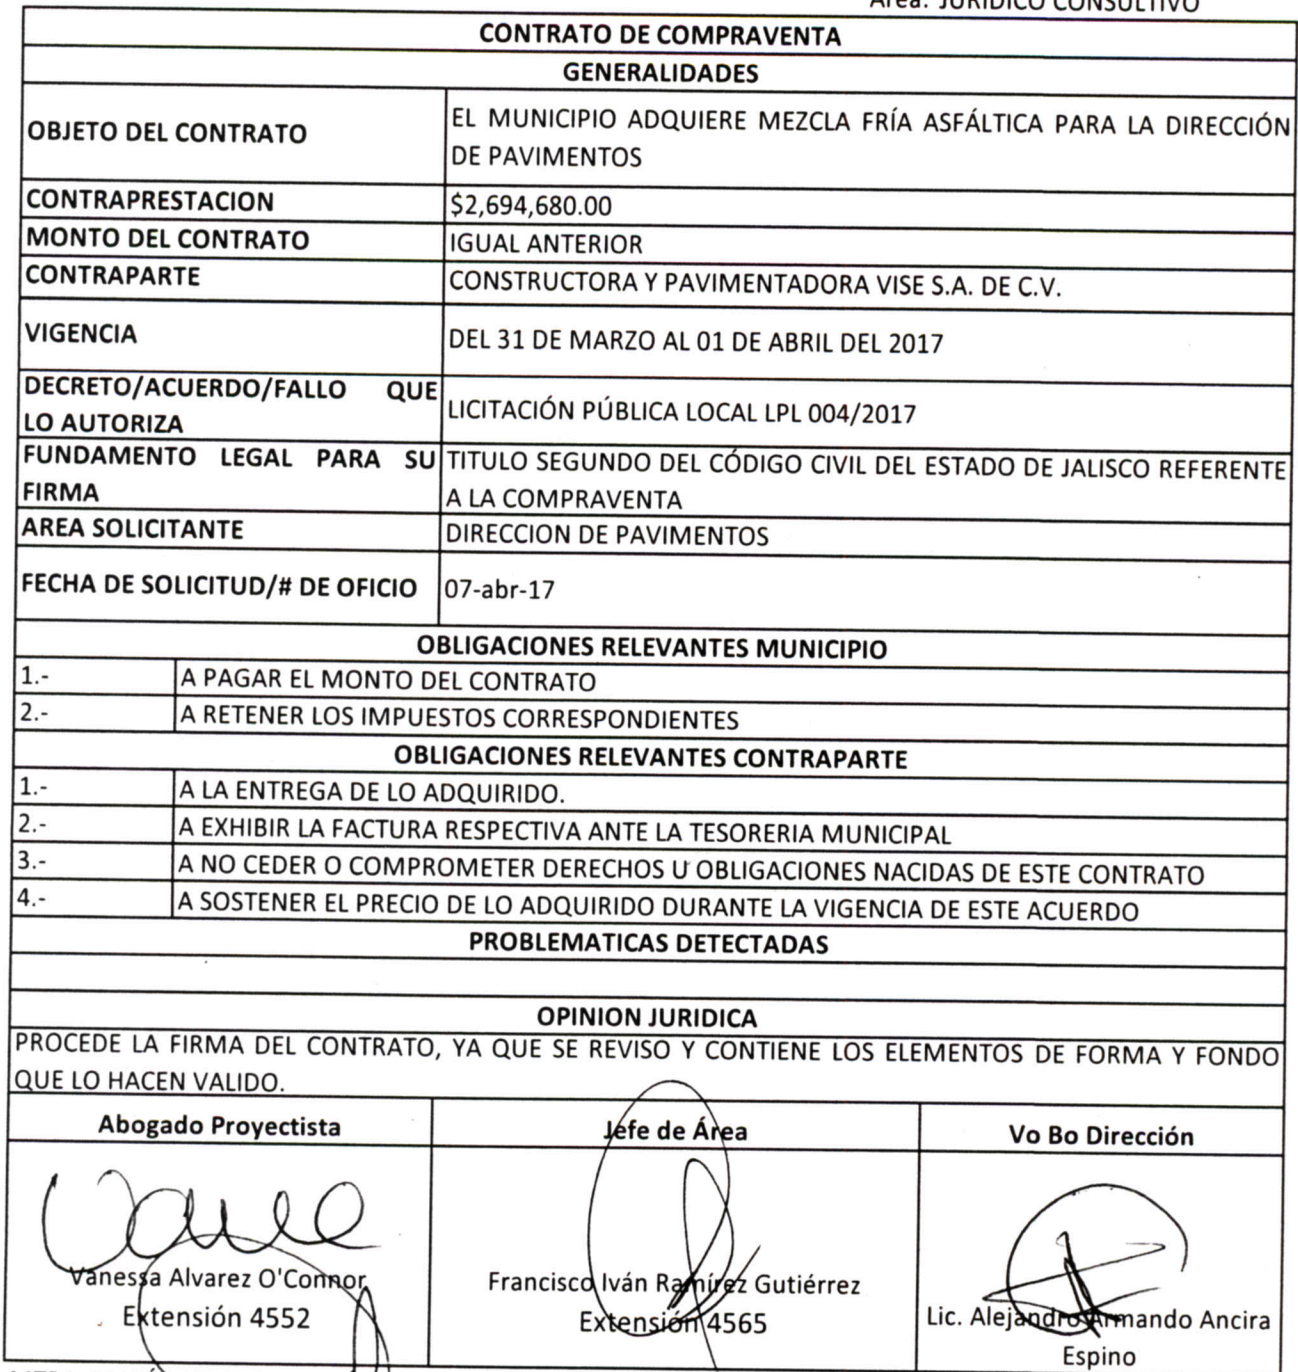 Area: JURIDICO CONSULTIVO
CONTRATO DE COMPRAVENTA
GENERALIDADES
OBJETO DEL CONTRATO
EL MUNICIPIO ADQUIERE MEZCLA FRÍA ASFÁLTICA PARA LA DIRECCIÓN
DE PAVIMENTOS
CONTRAPRESTACION
$2,694,680.00
MONTO DEL CONTRATO
IGUAL ANTERIOR
CONTRAPARTE
CONSTRUCTORA Y PAVIMENTADORA VISE S.A. DE C.V.
VIGENCIA
DEL 31 DE MARZO AL 01 DE ABRIL DEL 2017
DECRETO/ACUERDO/FALLO QUE
LO AUTORIZA
LICITACIÓN PÚBLICA LOCAL LPL 004/2017
FUNDAMENTO LEGAL PARA SU
FIRMA
TITULO SEGUNDO DEL CÓDIGO CIVIL DEL ESTADO DE JALISCO REFERENTE
A LA COMPRAVENTA
AREA SOLICITANTE
DIRECCION DE PAVIMENTOS
FECHA DE SOLICITUD/# DE OFICIO
07-abr-17
OBLIGACIONES RELEVANTES MUNICIPIO
1.- A PAGAR EL MONTO DEL CONTRATO
2.- A RETENER LOS IMPUESTOS CORRESPONDIENTES
OBLIGACIONES RELEVANTES CONTRAPARTE
1.- A LA ENTREGA DE LO ADQUIRIDO.
2.- A EXHIBIR LA FACTURA RESPECTIVA ANTE LA TESORERIA MUNICIPAL
3.- A NO CEDER O COMPROMETER DERECHOS U OBLIGACIONES NACIDAS DE ESTE CONTRATO
4.- A SOSTENER EL PRECIO DE LO ADQUIRIDO DURANTE LA VIGENCIA DE ESTE ACUERDO
PROBLEMATICAS DETECTADAS
OPINION JURIDICA
PROCEDE LA FIRMA DEL CONTRATO, YA QUE SE REVISO Y CONTIENE LOS ELEMENTOS DE FORMA Y FONDO
QUE LO HACEN VALIDO.
Abogado Proyectista
Jefe de Área
Vo Bo Dirección
Vanessa Alvarez O'Connor
Extensión 4552
Francisco Iván Ramírez Gutiérrez
Extensión 4565
Lic. Alejandro Armando Ancira
Espino